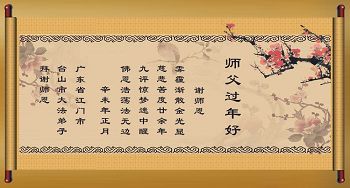 师父过年好
谢师恩
雾霾渐散金光显
慈悲普度廿余年
九评惊梦迷中醒
佛恩浩荡法无边
辛未年正月
广东省江门市
台山市大法弟子
拜谢师恩